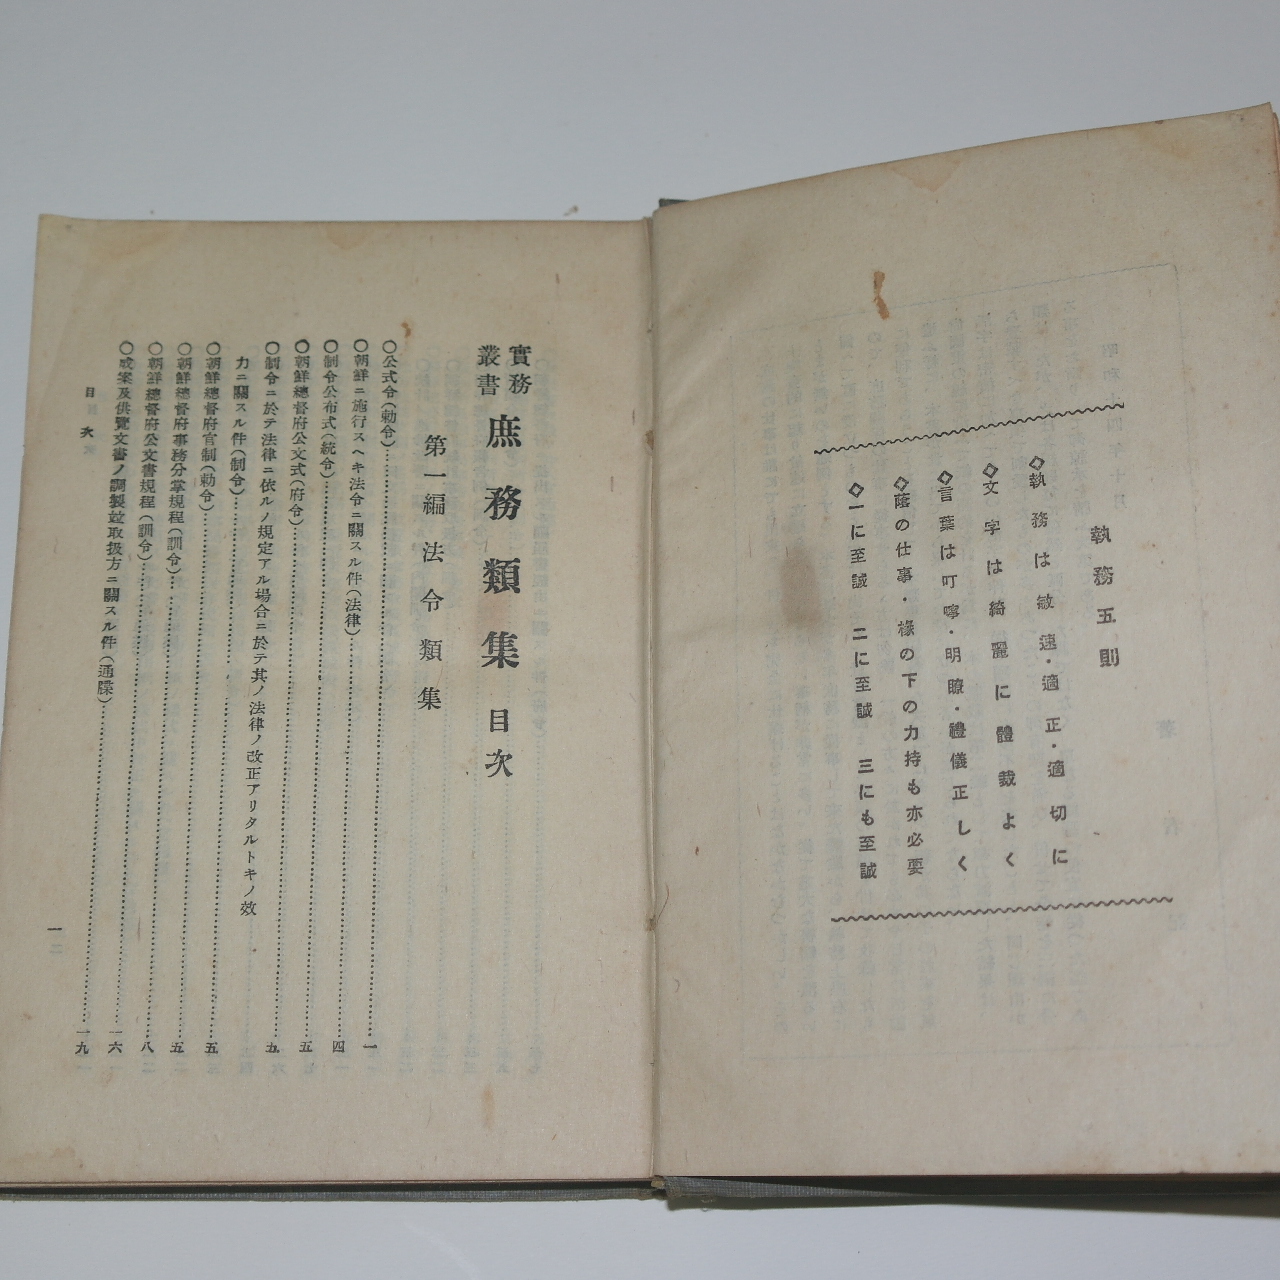 執務五則
◇執務は敏速・適正・適切に
◇文字は綺麗に體裁よく
◇言葉は叮嚀・明瞭・禮儀正しく
◇蔭の仕事・椽の下の力持も亦必要
◇一に至誠 二に至誠 三にも至誠
實務叢書 庶務類集目次
第一編 法令類集
〇公式令(勅令)…一
〇朝鮮ニ施行スヘキ法令ニ關スル件(法律)…四
〇制令公布式(統令)…五
〇朝鮮總督府公文式(府令)…五
〇制令ニ於テ法律ニ依ルノ規定アル場合ニ於テ其ノ法律ノ改正アリタルトキノ效
力ニ關スル件(制令)…五
〇朝鮮總督府官制(勅令)…五
〇朝鮮總督府事務分掌規程(訓令)…八
〇朝鮮總督府公文書規程(訓令)…一六
〇成案及供覽文書ノ調製竝取扱方ニ關スル件(通牒)…一九
目次
一